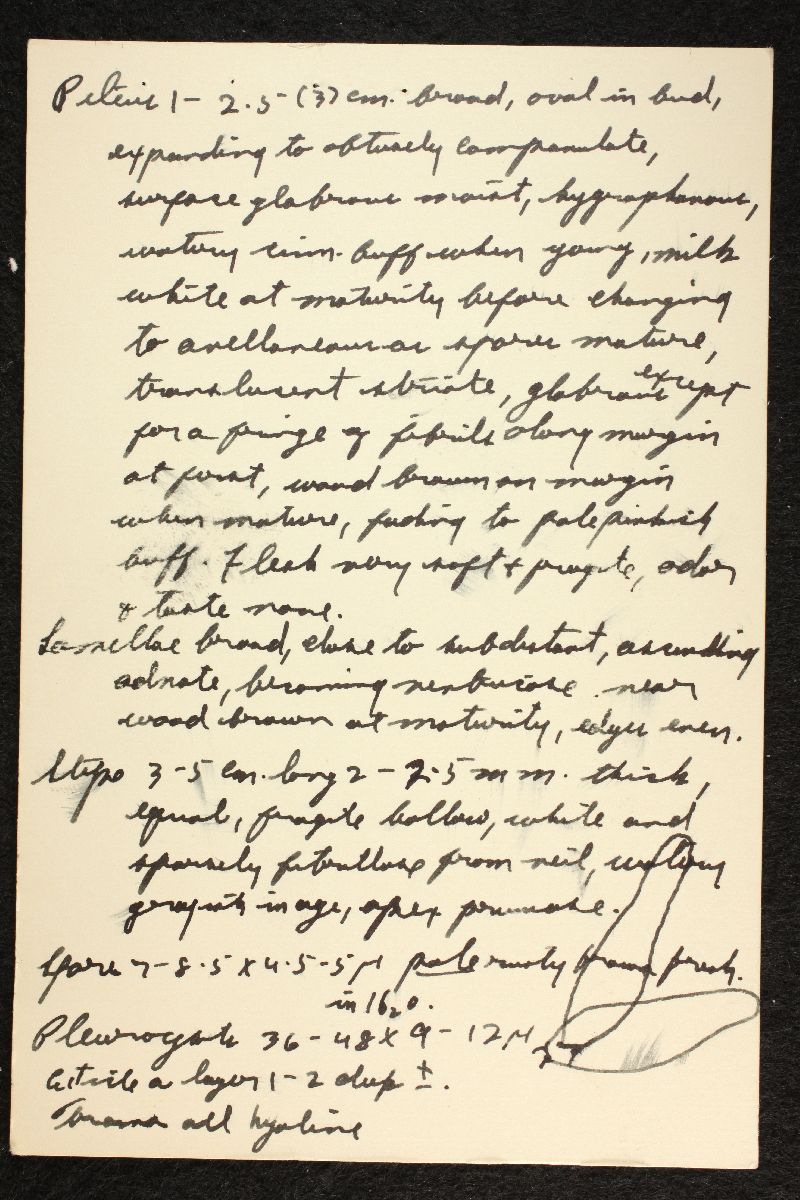 Pileus 1 - 2.5 (3) cm. broad, oval in bud,
expanding to obtusely campanulate,
surface glabrous moist, hygrophanous,
watery cinn. buff when young, milk
white at maturity before changing
to avellaneous as spores mature,
translucent striate, glabrous except
for a fringe of fibrils along margin
at first, wood brown on margin
when mature, fading to pale pinkish
buff. Flesh very soft & fragile, odor
& taste none.
Lamellae broad, close to subdistant, ascending
adnate, becoming ventricose near
wood brown at maturity, edges even.
Stipe 3-5 cm. long 2 - 2.5 mm. thick,
equal, fragile hollow, white and
sparsely fibrillose from veil, watery
grayish in age, apex pruinose.
Spores 7-8.5 x 4.5-5 µ pale rusty brown fresh.
in H2O.
Pleurocysts 36-48 x 9-12 µ
Cuticle a layer 1-2 deep ±.
Trama all hyaline